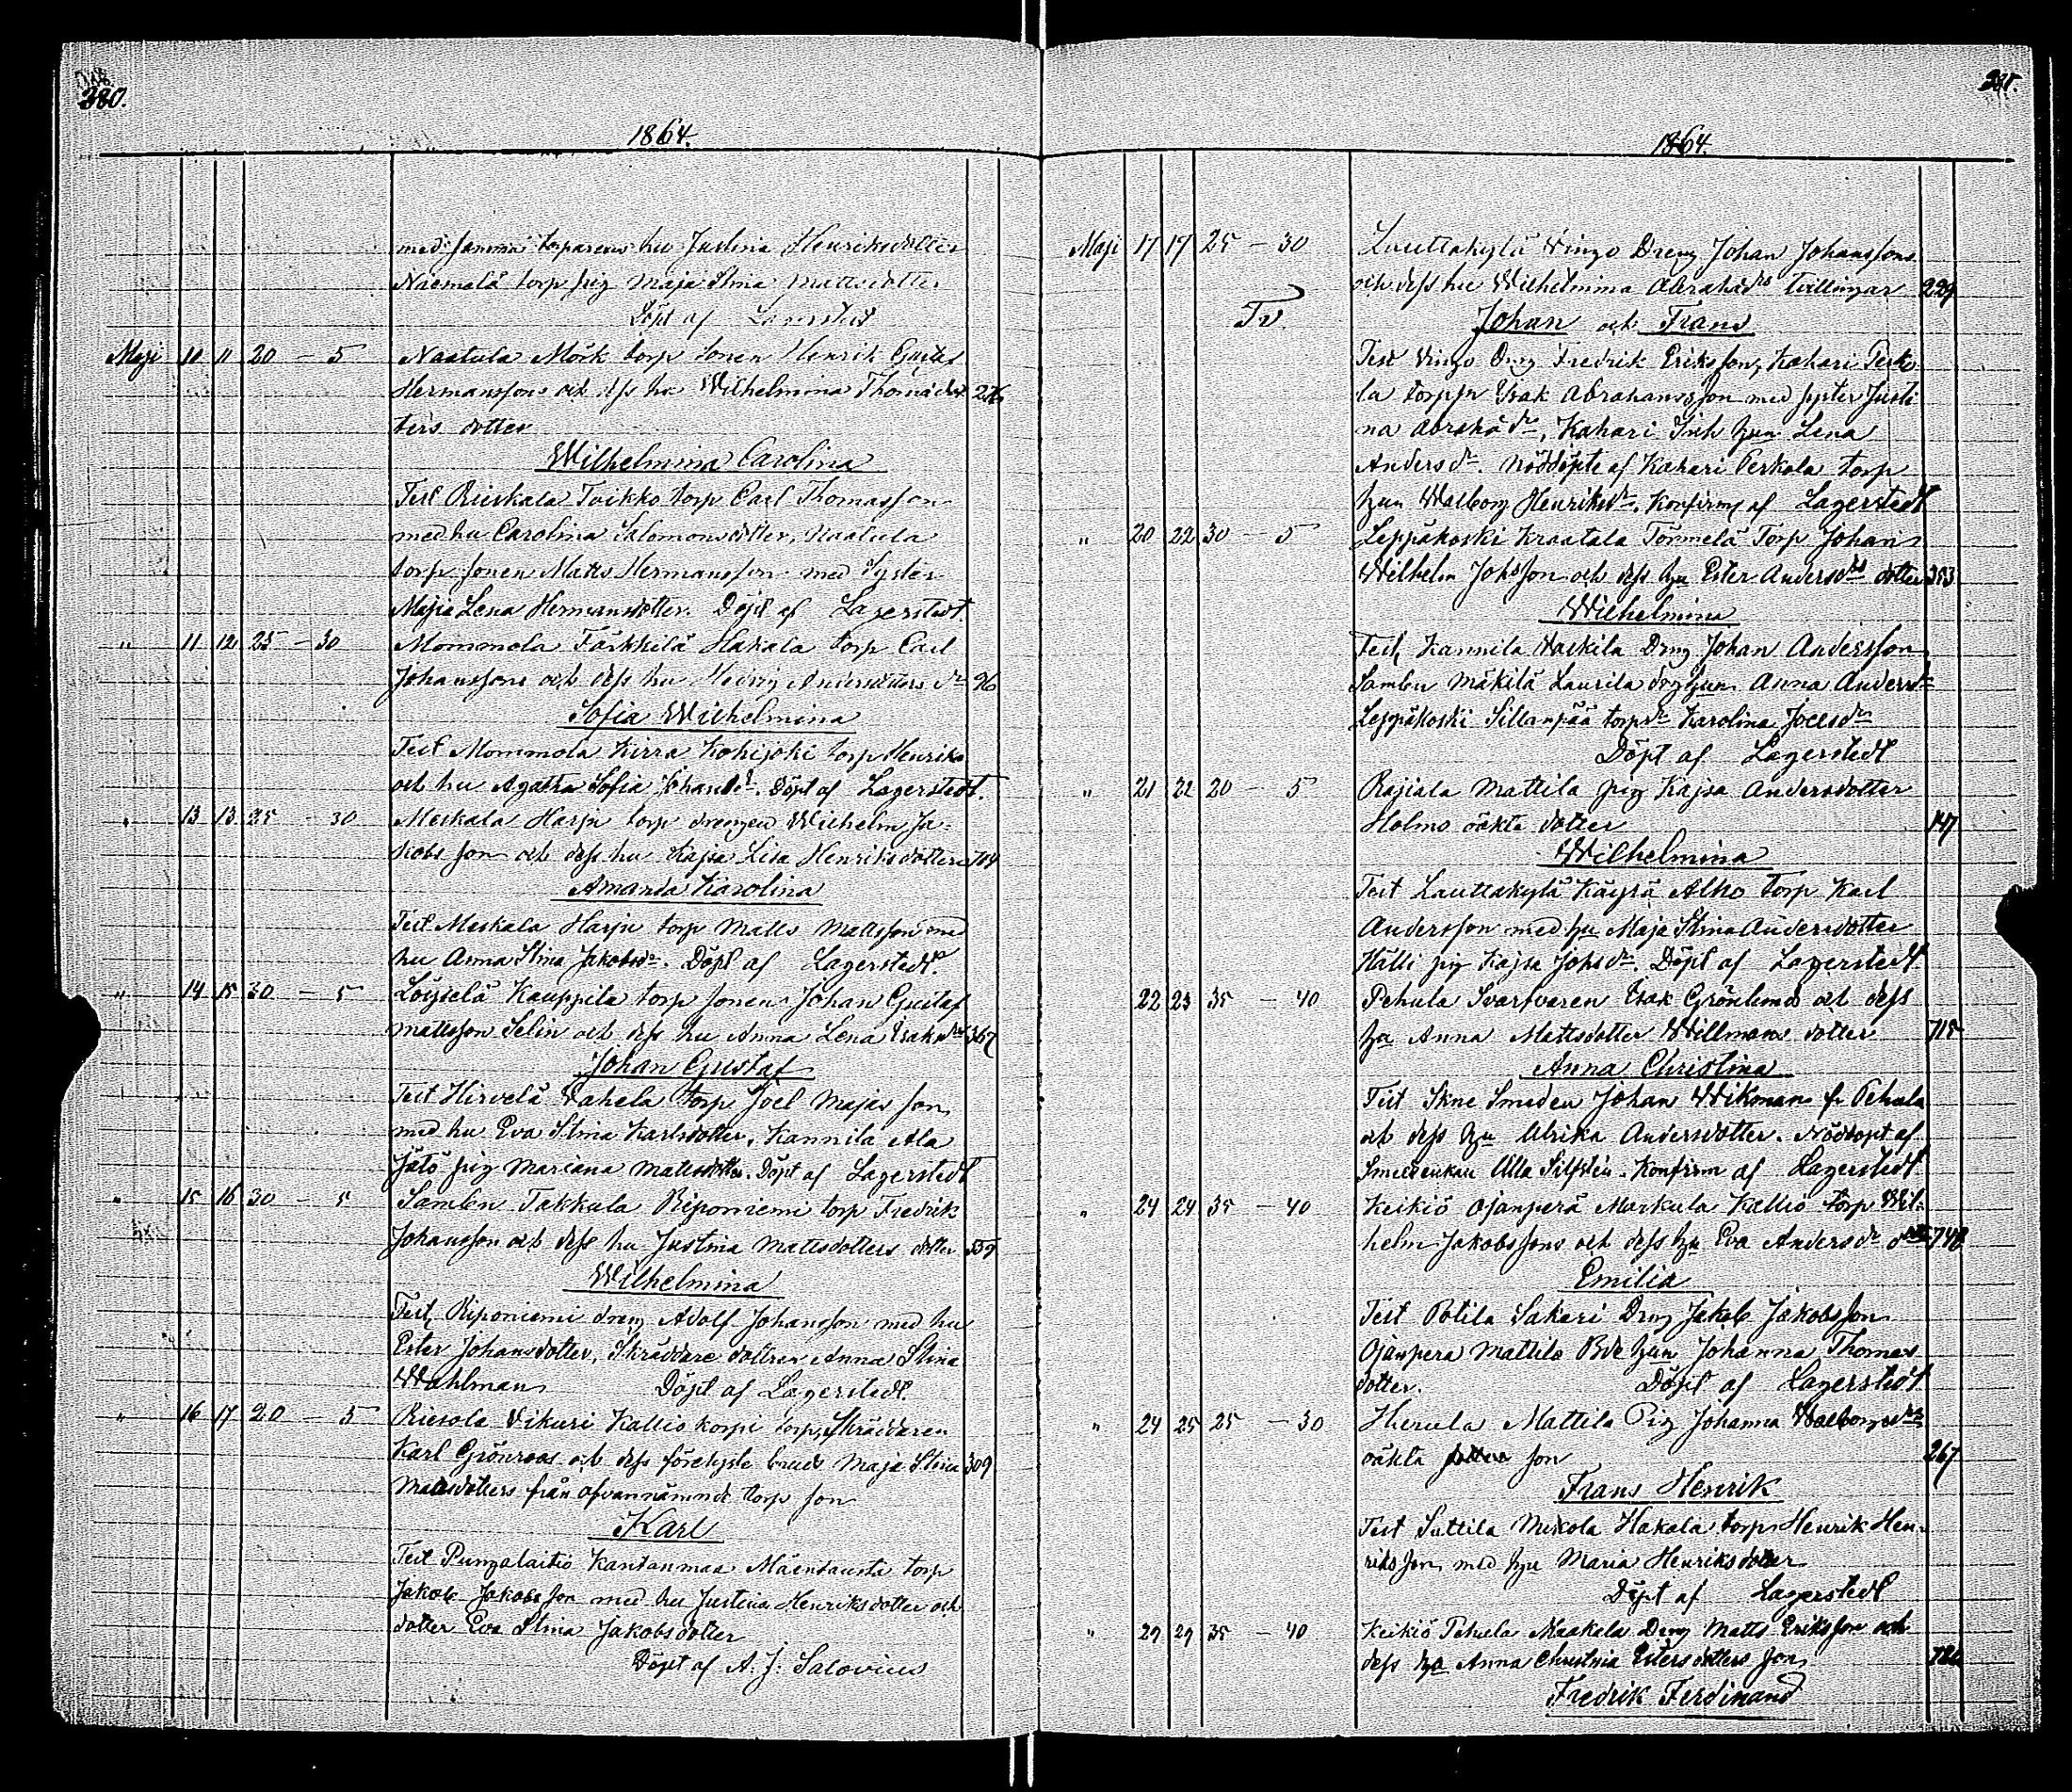 280.
1864.
med samma torparens hu Justina Henriksdotter
Näemalä torp pig Maja Stina Mattsdotter
Döpt af Lagerstedt
Maji 10 11 20 – 5 Naatula Mörk torp sonen Henrik Gustaf
Hermanssons och dess hu Wilhelmina Thomædot 276
ters dotter
Wilhelmina Carolina
Test Rieskala Toikko torp Carl Thomasson
med hu Carolina Salomonsdotter, Naatula
torp sonen Matts Hermansson med Syster
Maja Lena Hermansdotter. Döpt af Lagerstedt
" 11 12 25 – 30 Mommola Färkkilä Hakala torp Carl
Johanssons och dess hu Hedvig Andersdotters dr 96
Sofia Wilhelmina
Test Mommola Kirra Kohijoki torp Henrik
och hu Agatha Sofia Johansdr. Döpt af Lagerstedt.
" 13 13 25 – 30 Meskala Harju torp drengen Wilhelm Ja-
kobsson och dess hu Kajsa Lisa Henriksdotters 704
Amanda Karolina
Test Meskala Harju torp Matts Mattsson med
hu Anna Stina Jakobsdr. Döpt af Lagerstedt.
" 14 15 30 – 5 Löyselä Kauppila torp sonen Johan Gustaf
Mattsson Selin och dess hu Anna Lena Isaksdrs 367
Johan Gustaf
Test Hirvelä Vahela torp Joel Majasson
med hu Eva Stina Karlsdotter, Kannila Ala
Jätö pig Mariana Mattsdotter. Döpt af Lagerstedt
" 15 16 30 – 5 Sambu Takkula Riponiemi torp Fredrik
Johansson och dess hu Justina Mattsdotters dotter 559
Wilhelmina
Test, Riponiemi dreng Adolf Johansson med hu
Ester Johansdotter, Skräddare dottren Anna Stina
Wahlman Döpt af Lagerstedt.
" 16 17 20 – 5 Riesola Vikuri Kalliokorpi torp, Skräddaren
Karl Grönroos och dess förelyste brud Maja Stina 309
Mattsdotters från ofvannämnde torp son
Karl
Test Pungalaitio Kantanmaa Mäentausta torp
Jakob Jakobsson med hu Justina Henriksdotter och
dotter Eva Stina Jakobsdotter
Döpt af A. J. Salovius
281.
1864.
Maji 17 17 25 – 30 Lauttakylä Vingo Dreng Johan Johanssons
och dess hu Wilhelmina Abrahadrs tvillingar 229
Tv. Johan och Frans
Test Vingo Dreng Fredrik Eriksson, Kahari Perko
la torppr Isak Abrahamsson med syster Justi
na Abrahadr, Kahari Inh hun Lena
Andersdr. Nöddöpte af Kahari Perkola torp
hun Walborg Henriksdr, Konfirm af Lagerstedt
" 20 22 30 – 5 Leppäkoski Kraatala Törmelä Torp Johan
Wilhelm Johsson och dess hu Ester Andersdrs dotter 353
Wilhelmina
Test, Kannila Naskila Dreng Johan Andersson
Sambu Mäkilä Laurila drghun Anna Andersdr
Leppäkoski Sillanpää torpdr Karolina Joelsdr
Döpt af Lagerstedt
" 21 22 20 – 5 Raijala Mattila pig Kajsa Andersdotter
Holms oäkta dotter 147
Wilhelmina
Test Lauttakylä Käyrä Alho torp Karl
Andersson med hu Maja Stina Andersdotter
Hälli pig Kajsa Johsdr. Döpt af Lagerstedt
22 23 35 – 40 Pehula Svarfvaren Isak Grönlund och dess
hu Anna Mattsdotter Willmans dotter 715
Anna Christina
Test Skne Smeden Johan Wikman fr Pehula
och dess hu Ulrika Andersdotter. Nöddöpt af
Smedenkan Ulla Silfstén. Konfirm af Lagerstedt
" 24 24 35 – 40 Keikiö Ojanperä Markula Kallio torp Wil-
helm Jakobssons och dess hu Eva Andersdr dotter 748
Emilia
Test Potila Sakari Dreng Jakob Jakobsson
Ojanpera Mattila Bde hun Johanna Thomas
dotter. Döpt af Lagerstedt
" 24 25 25 – 30 Huhula Mattila Pig Johanna Walborgsdrs
oäkta son 267
Frans Henrik
Test Suttila Mikola Hakala torp Henrik Hen-
riksson, med hu Maria Henriksdotter
Döpt af Lagerstedt
" 29 29 35 – 40 Keikiö Pehula Maakala Dreng Matts Eriksson och
dess hu Anna Christina Estersdotters son
Fredrik Ferdinand